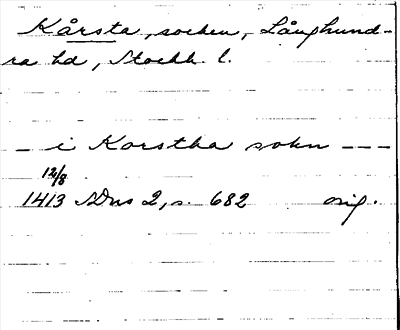 Kårsta, socken, Långhund-
ra hd, Stockh. l.
- i Korstha sokn ---
12/8
1413 SDns 2, s. 682 orig.